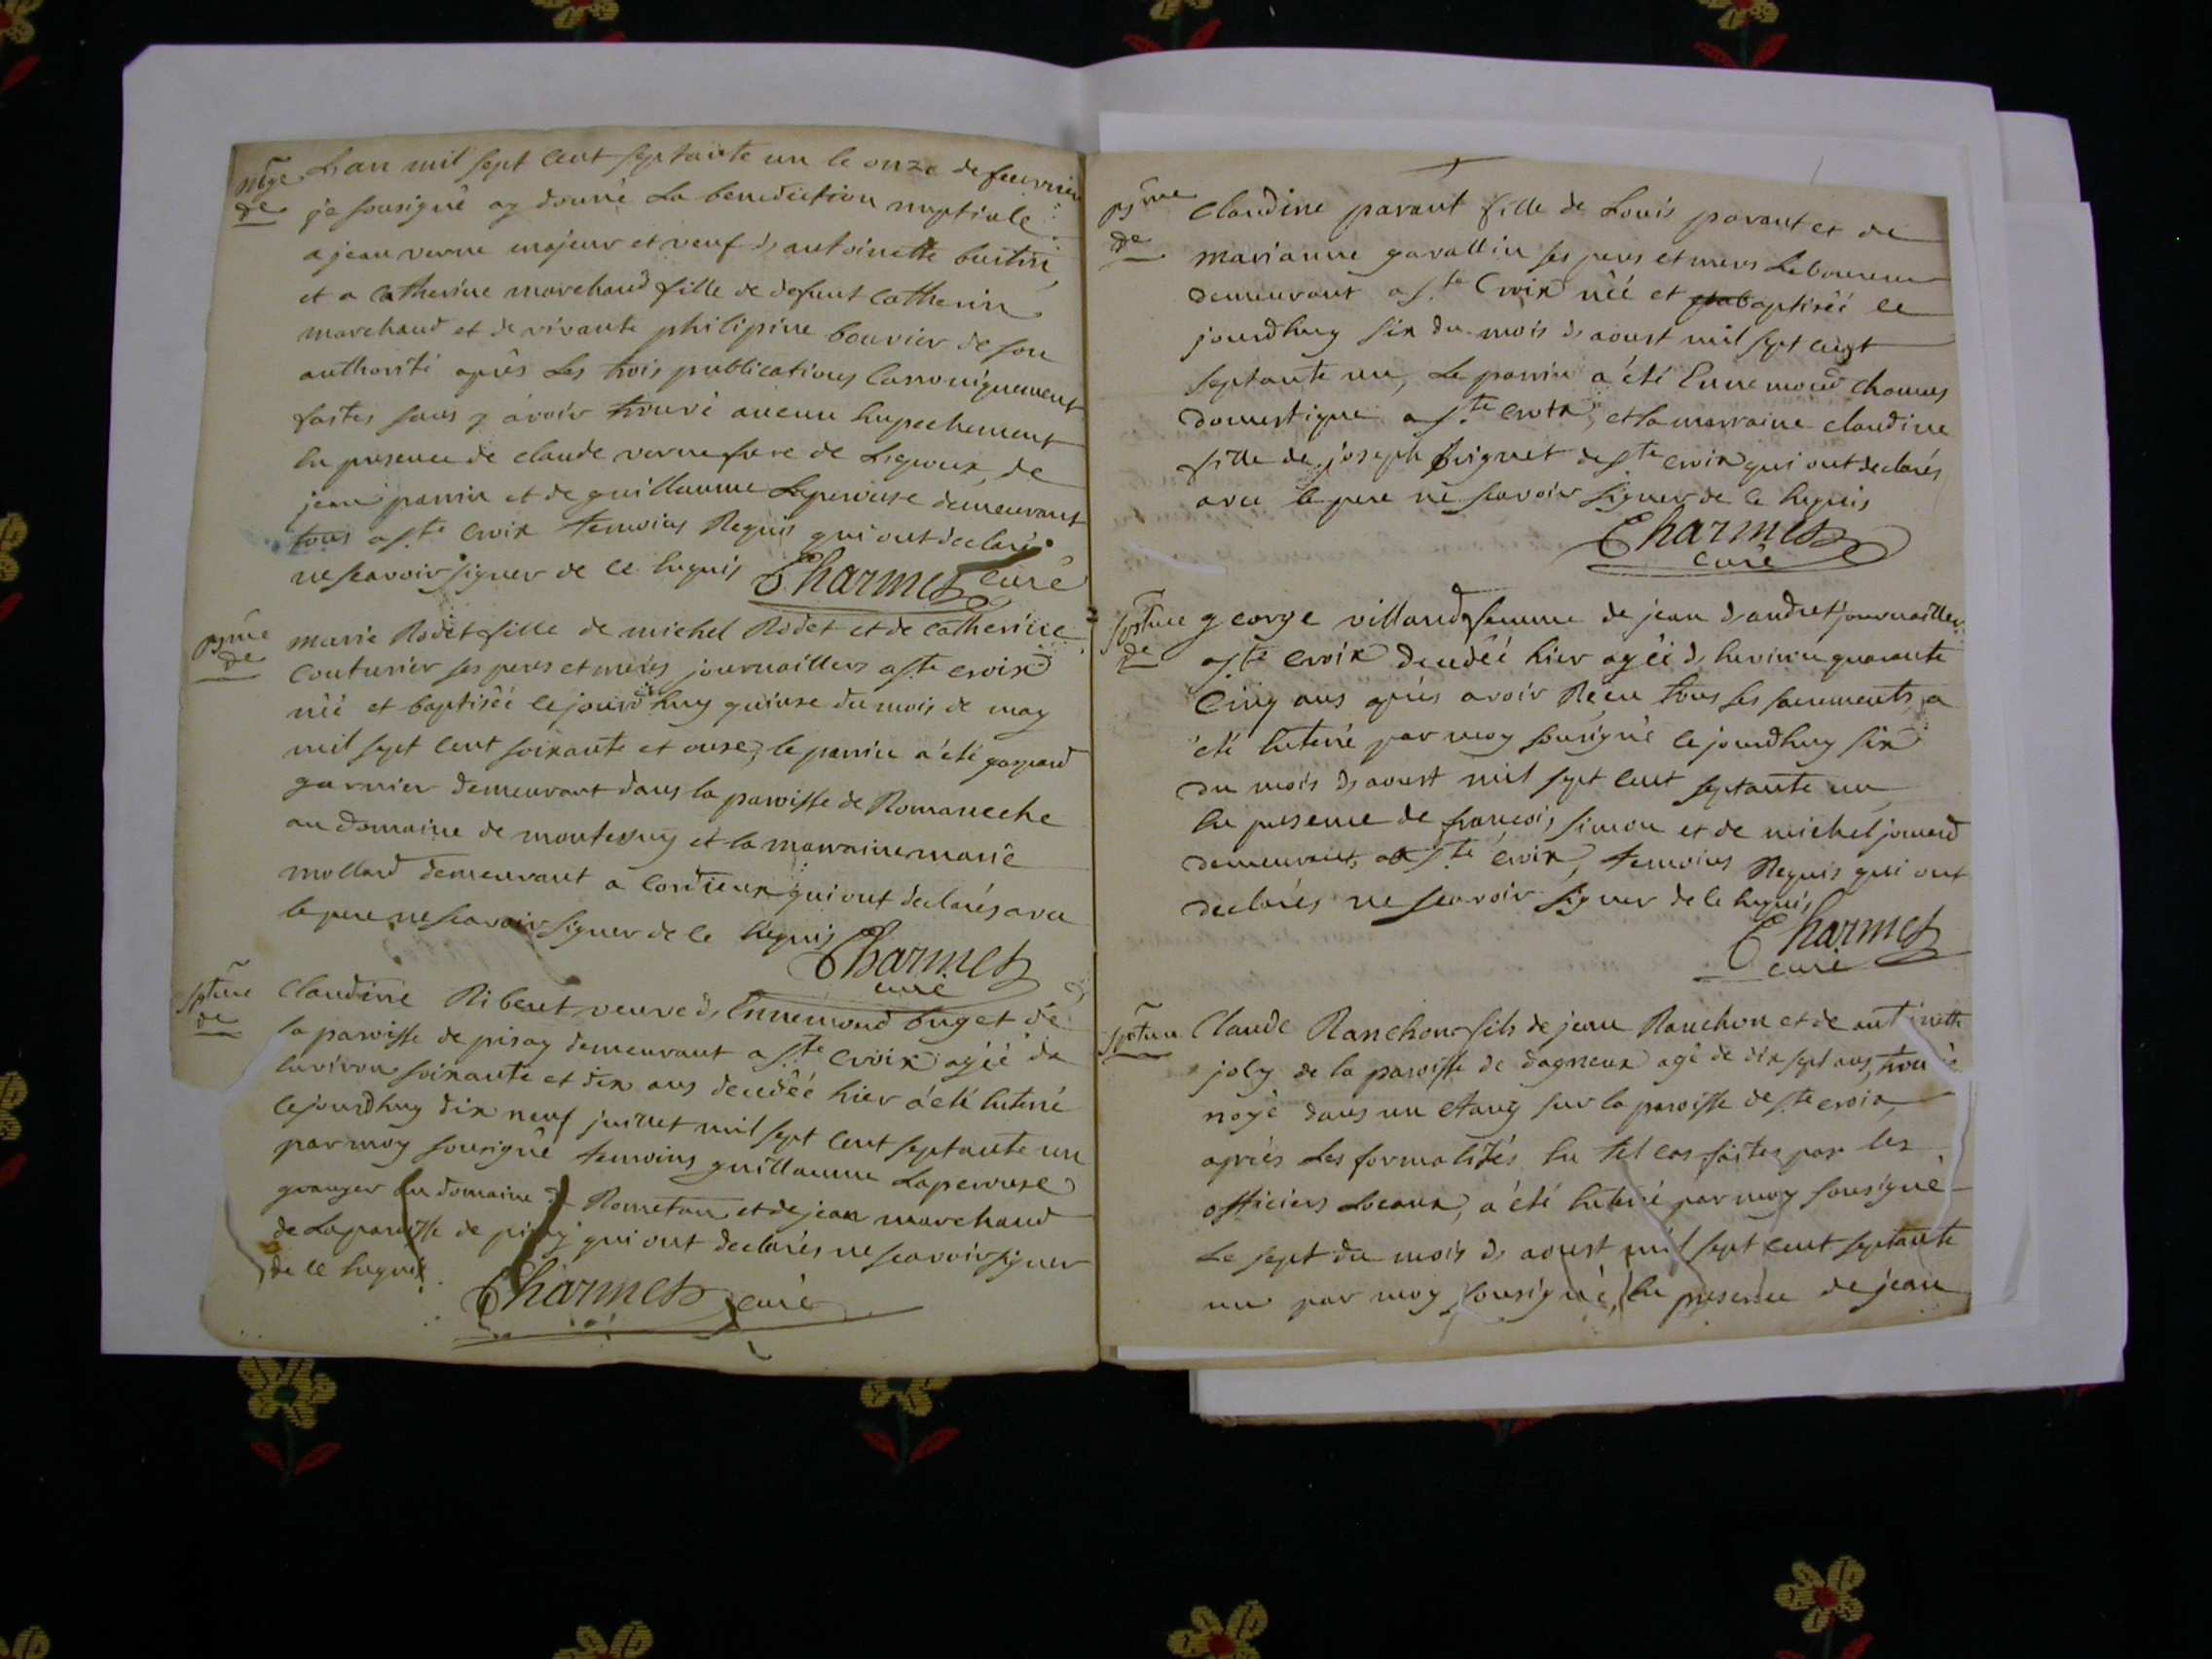 mge L'an mil sept cent septante un le onze de fevrier
de je sousigné ay donné La benediction nuptiale
a jean verne majeur et veuf d'antoinette
et a Catherine marchand fille de defunt Catherin
marchand et de vivante philipine bouvier de son
authorité après Les trois publications Cannoniquement
faites sans y avoir trouvé aucun Enpechement
En presence de claude verne frere de Ligneux, de
jean parrin et de guillaume Laperouse demeurant
tous a Ste Croix temoins Requis qui ont declaré
ne scavoir signer de ce Enquis Charmes Curé
psme de marie Rodet fille de michel Rodet et de Catherine
Couturier ses peres et meres journaillers a Ste croix
née et baptisée cejourdhuy quinse du mois de may
mil sept cent soixante et onse, le parrin a été gaspard
garnier demeurant dans la paroisse de Romaneche
au domaine de montessuy et la marraine marie
mollard demeurant a Cordieux qui ont declarés avec
le pere ne scavoir signer de ce Enquis
Charmes
curé
spture Claudine Riberet veuve d'Ennemond buget de
de la paroisse de pisay demeurant a Ste Croix agée de
Environ soixante et dix ans decedée hier a été Enterré
cejourdhuy dix neuf juillet mil sept cent septante un
par moy sousigné temoins guillaume Laperouse
granger au domaine de Rometan et de jean marchand
de La paroisse de pisay qui ont declarés ne scavoir signer
de ce Enquis
Charmes curé
psme Claudine parant fille de Louis parant et de
de marianne gavallin ses peres et meres Laboureur
demeurant a Ste Croix née et baptisée ce
jourdhuy six du mois d'aoust mil sept cent
septante un, Le parrin a été Ennemond
domestique a Ste Croix, et la marraine claudine
fille de joseph de Ste croix qui ont declarés
avec le pere ne scavoir signer de ce Enquis
Charmes
Curé
spture george villand femme de jean d'andret journaillier
de a Ste Croix decedée hier agée d'Environ quarante
Cinq ans après avoir Recu tous ses sacrements, a
été Enterré par moy sousigné cejourdhuy six
du mois d'aoust mil sept cent septante un
En presence de francois simon et de michel
demeurant a Ste Croix, temoins Requis qui ont
declarés ne scavoir signer de ce Enquis
Charmes
curé
spture Claude Ranchon fils de jean Ranchon et de antoinette
joly de la paroisse de dagneux agé de dix sept ans, trouvé
noyé dans un etang sur la paroisse de Ste croix,
après Les formalités En tel cas faites par les
officiers Locaux, a été Enterré par moy sousigné
Le sept du mois d'aoust mil sept cent septante
un par moy sousigné, En presence de jean